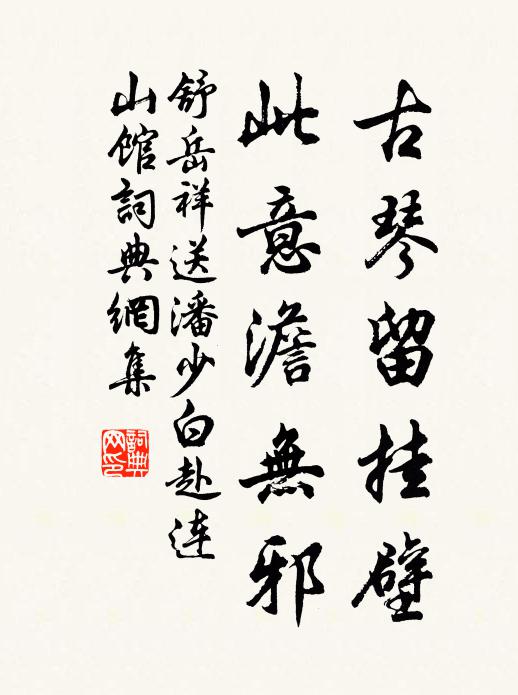 古琴留挂壁
此意澹無邪
舒岳祥送潘少白赴連
山館詞典網集
詞典网印